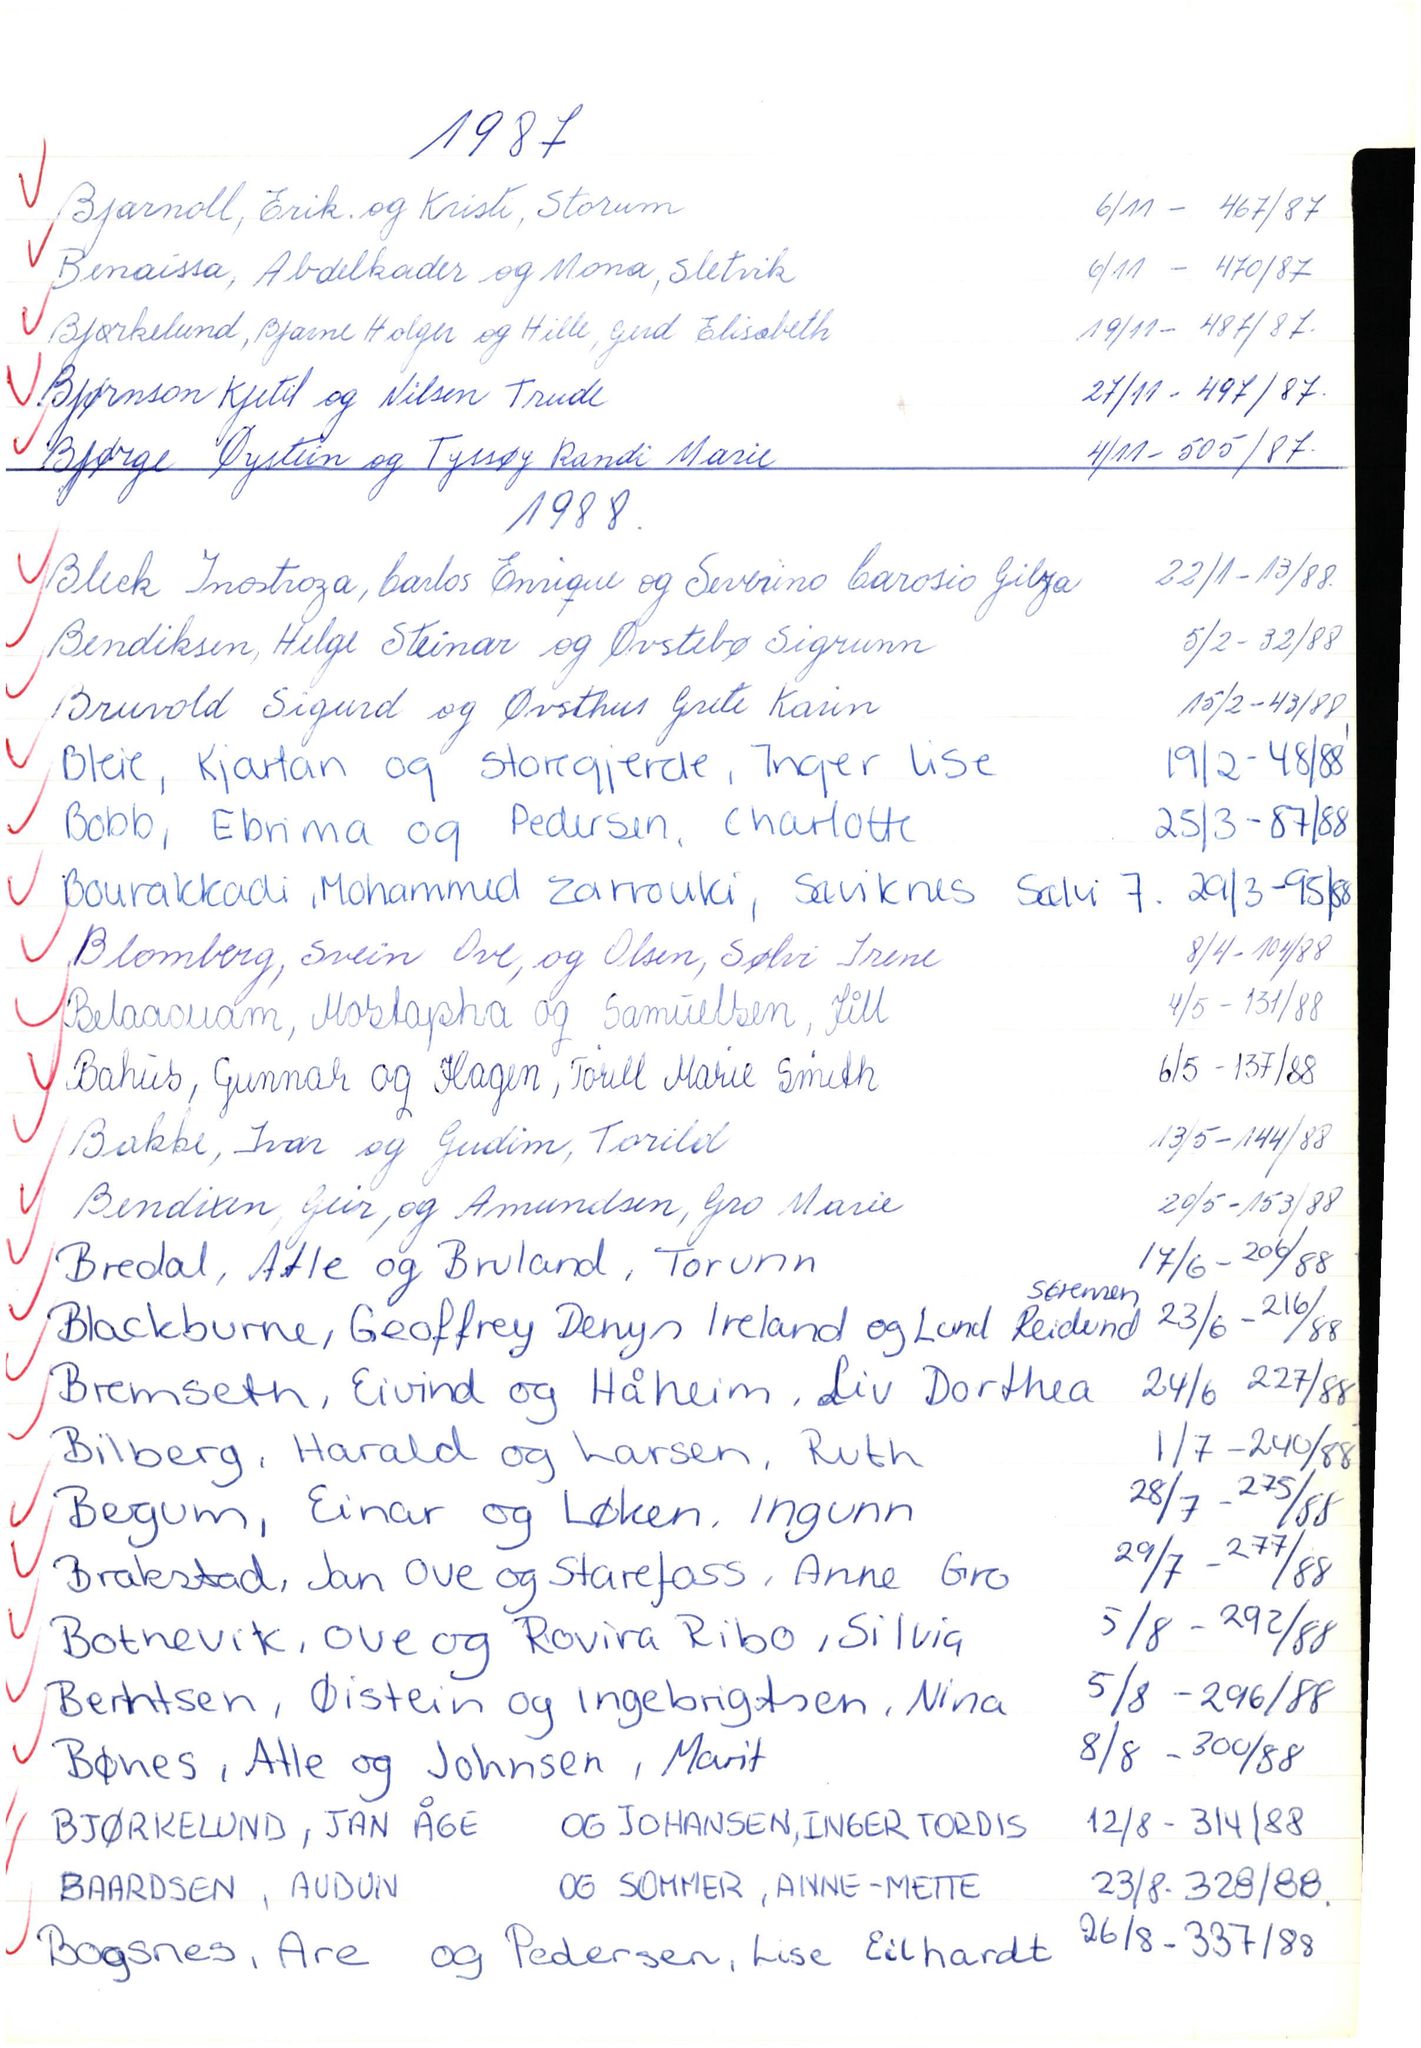 1987
Bjarnoll, Erik. og Kristi, Storum 6/11 - 467/87
Benaissa, Abdelkader og Mona, Sletvik 6/11 - 470/87
Bjørkelund, Bjarne Holger og Hille, Gerd Elisabeth 19/11 - 487/87.
Bjørnson Kjetil og Nilsen Trude 27/11 - 497/87.
Bjørge Øystein og Tyssøy Randi Marie 4/11 - 505/87.
1988.
Bleck Inostroza, Carlos Enrique og Severino Carosio Gilza 22/1 - 13/88.
Bendiksen, Helge Steinar og Øvstebø Sigrunn 5/2 - 32/88
Bruvold Sigurd og Øvsthus Grete Karin 15/2 - 43/88
Bleie, Kjartan og Storegjerde, Inger Lise 19/2 - 48/88
Bobb, Ebrima og Pedersen, Charlotte 25/3 - 87/88
Bourakkadi, Mohammed Zarrouki, Sæviknes Sølvi 7. 29/3 - 95/88
Blomberg, Svein Ove, og Olsen, Sølvi Irene 8/4 - 104/88
Belaaouam, Mostapha og Samuelsen, Jill 4/5 - 131/88
Bahus, Gunnar og Hagen, Torill Marie Smith 6/5 - 137/88
Bakke, Ivar og Gudim, Torild 13/5 - 144/88
Bendixen, Geir, og Amundsen, Gro Marie 20/5 - 153/88
Bredal, Atle og Bruland, Torunn 17/6 - 206/88
Sørensen
Blackburne, Geoffrey Denys Ireland og Lund Reidund 23/6 - 216/88
Bremseth, Eivind og Håheim, Liv Dorthea 24/6 227/88
Bilberg, Harald og Larsen, Ruth 1/7 - 240/88
Begum, Einar og Løken, Ingunn 28/7 - 275/88
Brakstad, Jan Ove og Starefoss, Anne Gro 29/7 - 277/88
Botnevik, Ove og Rovira Ribo, Silvia 5/8 - 292/88
Berntsen, Øistein og Ingebrigtsen, Nina 5/8 - 296/88
Bønes, Atle og Johnsen, Marit 8/8 - 300/88
BJØRKELUND, JAN ÅGE OG JOHANSEN, INGER TORDIS 12/8 - 314/88
BAARDSEN, AUDUN OG SOMMER, ANNE-METTE 23/8. 328/88.
Bogsnes, Are og Pedersen, Lise Eilhardt 26/8 - 337/88